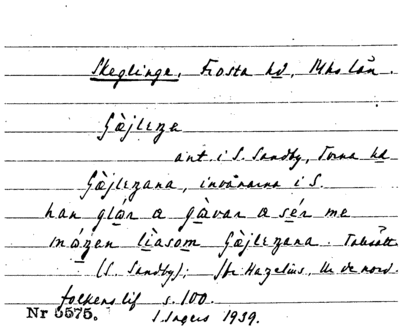 Skeglinge, Frosta hd, Mhs län.
Gàjlɩza
ant. i S. Sandby, Torna hd
Gàjlɩzana, invånarna i S.
han glár a gàvar a sér me
mázen lìasom Gàjlɩzana.
(S. Sandby); Hazelius, Ur de nord.
folkens lif s. 100.
Nr 5575. I. Ingers 1939.